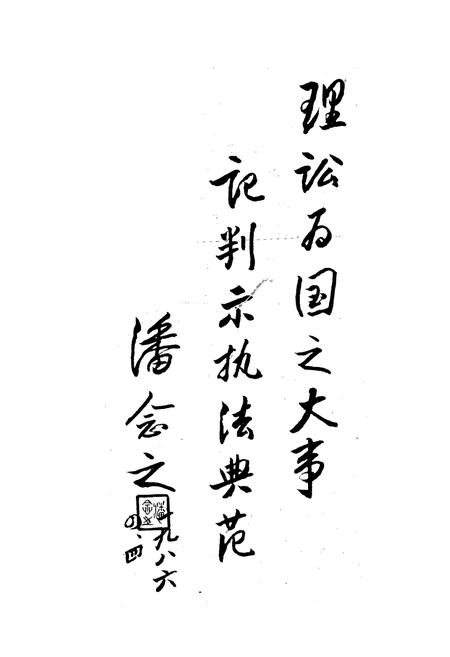 理讼为国之大事
记判示执法典范
潘念之
一九八六
四